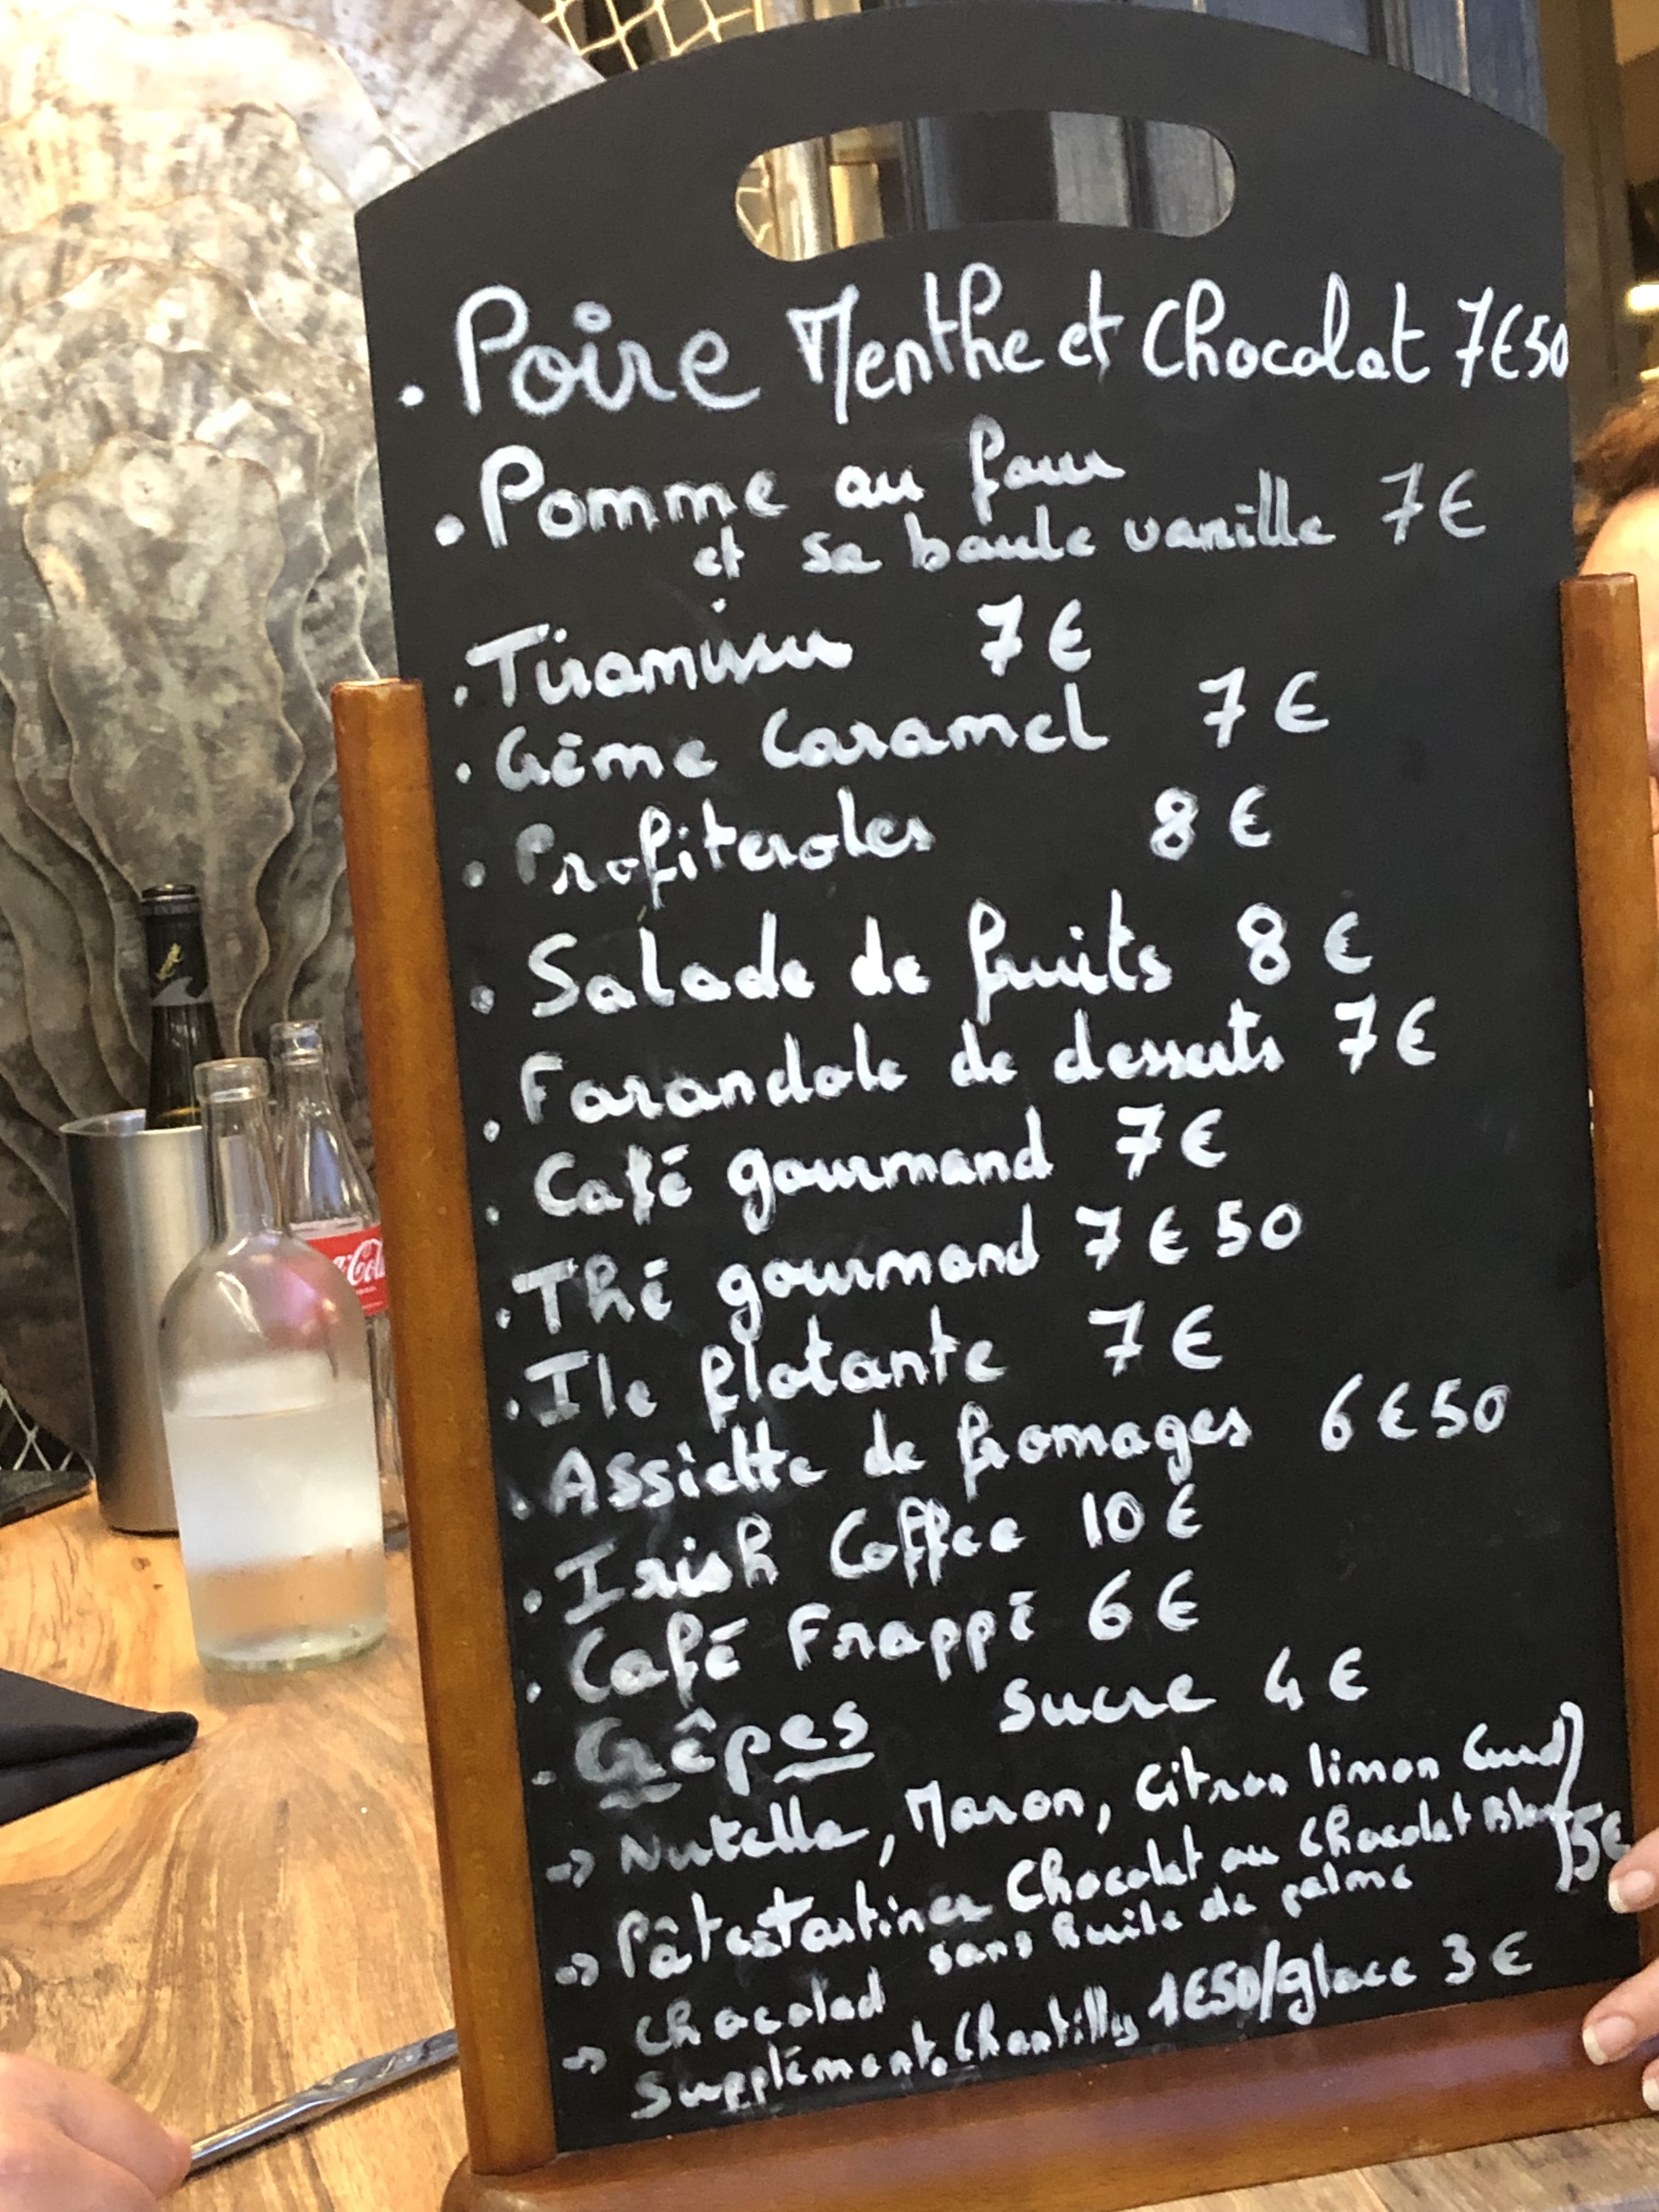 . Poire Menthe et Chocolat 7€50
. Pomme au four
et sa boule vanille 7€
. Tiramisu 7€
. Crème Caramel 7€
. Profiteroles 8€
. Salade de fruits 8€
. Farandole de desserts 7€
. Café gourmand 7€
. Thé gourmand 7€50
. Ile flotante 7€
. Assiette de fromages 6€50
. Irish Coffee 10€
. Café Frappé 6€
- Crêpes sucre 4€
-> Nutella, Maron, Citron limon Curd
-> Pâtes Tartines Chocolat ou Chocolat Blanc 5€
sans huile de palme
-> Chocolad
Supplément. Chantilly 1€50/glace 3€